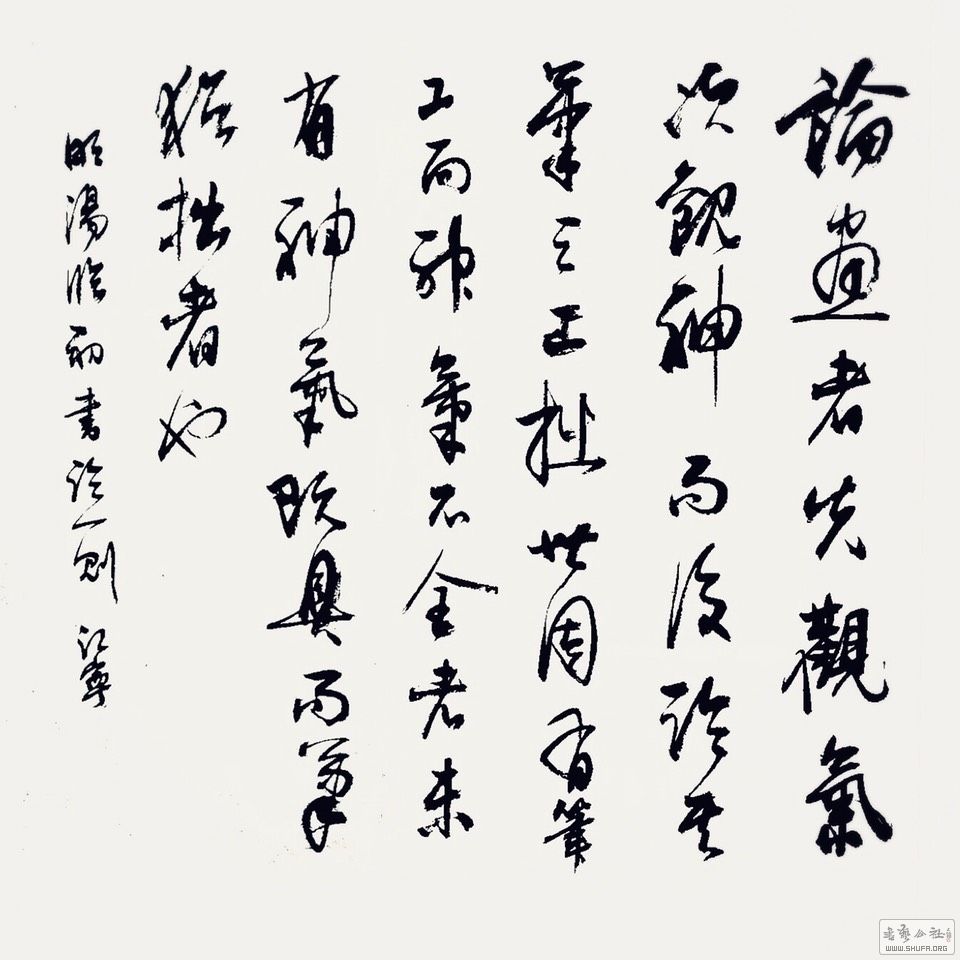 論畫者先觀氣
次觀神而後論其
筆之工拙世固有筆
工而神氣不全者未
有神氣既具而筆
猶拙者也
明湯臨初書論一則 江寧
書藝公社
WWW.SHUFA.ORG